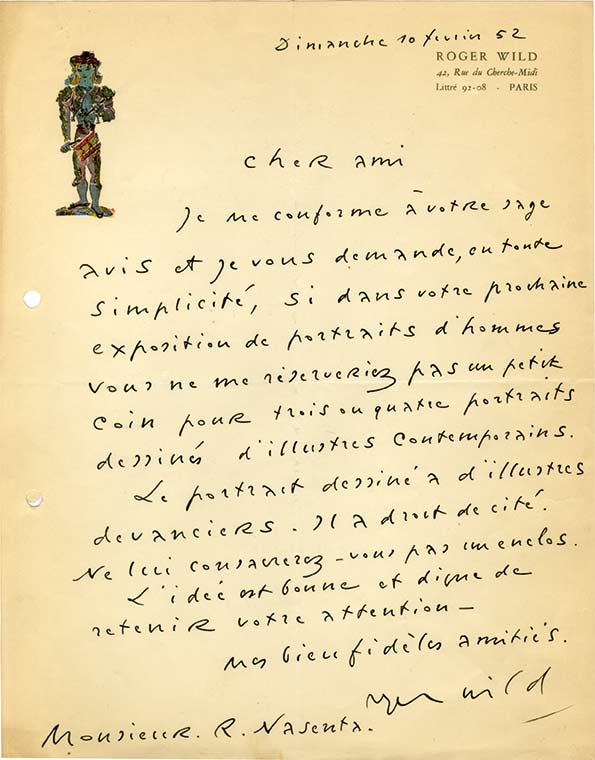 Dimanche 10 février 52
ROGER WILD
42, Rue du Cherche-Midi
Littré 92-08 - PARIS
Cher ami
Je me conforme à votre sage
avis et je vous demande, en toute
simplicité, si dans votre prochaine
exposition de portraits d'hommes
vous ne me réserveriez pas un petit
coin pour trois ou quatre portraits
dessinés d'illustres contemporains.
Le portrait dessiné a d'illustres
devanciers. Il a droit de cité.
Ne lui consacrerez-vous pas un enclos.
L'idée est bonne et digne de
retenir votre attention —
Mes bien fidèles amitiés.
Roger Wild
Monsieur. R. Nasenta.